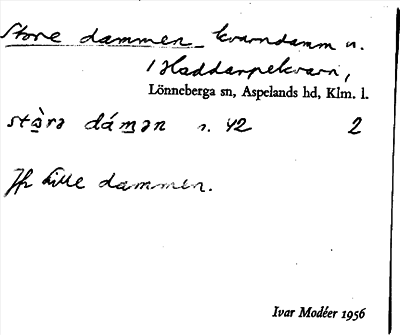 Store dammen kvarndamm n.
i Haddarpekvarn,
Lönneberga sn, Aspelands hd, Klm. l.
stò̱rə dámə̱n n. 42 2
Jfr Lille dammen.
Ivar Modéer 1956